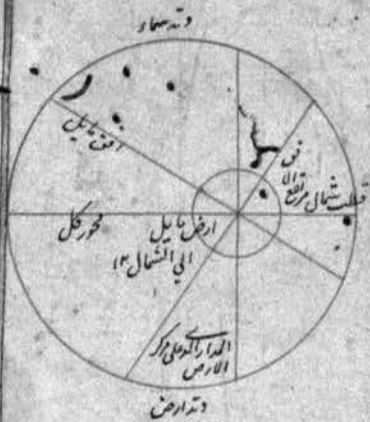 وتد سماء
افق مایل
قطب شمال
مرتفع الا
فق
محور کل
ارض مایل
الی الشمال
المدار الذی علی مرکز
الارض
وتد ارض